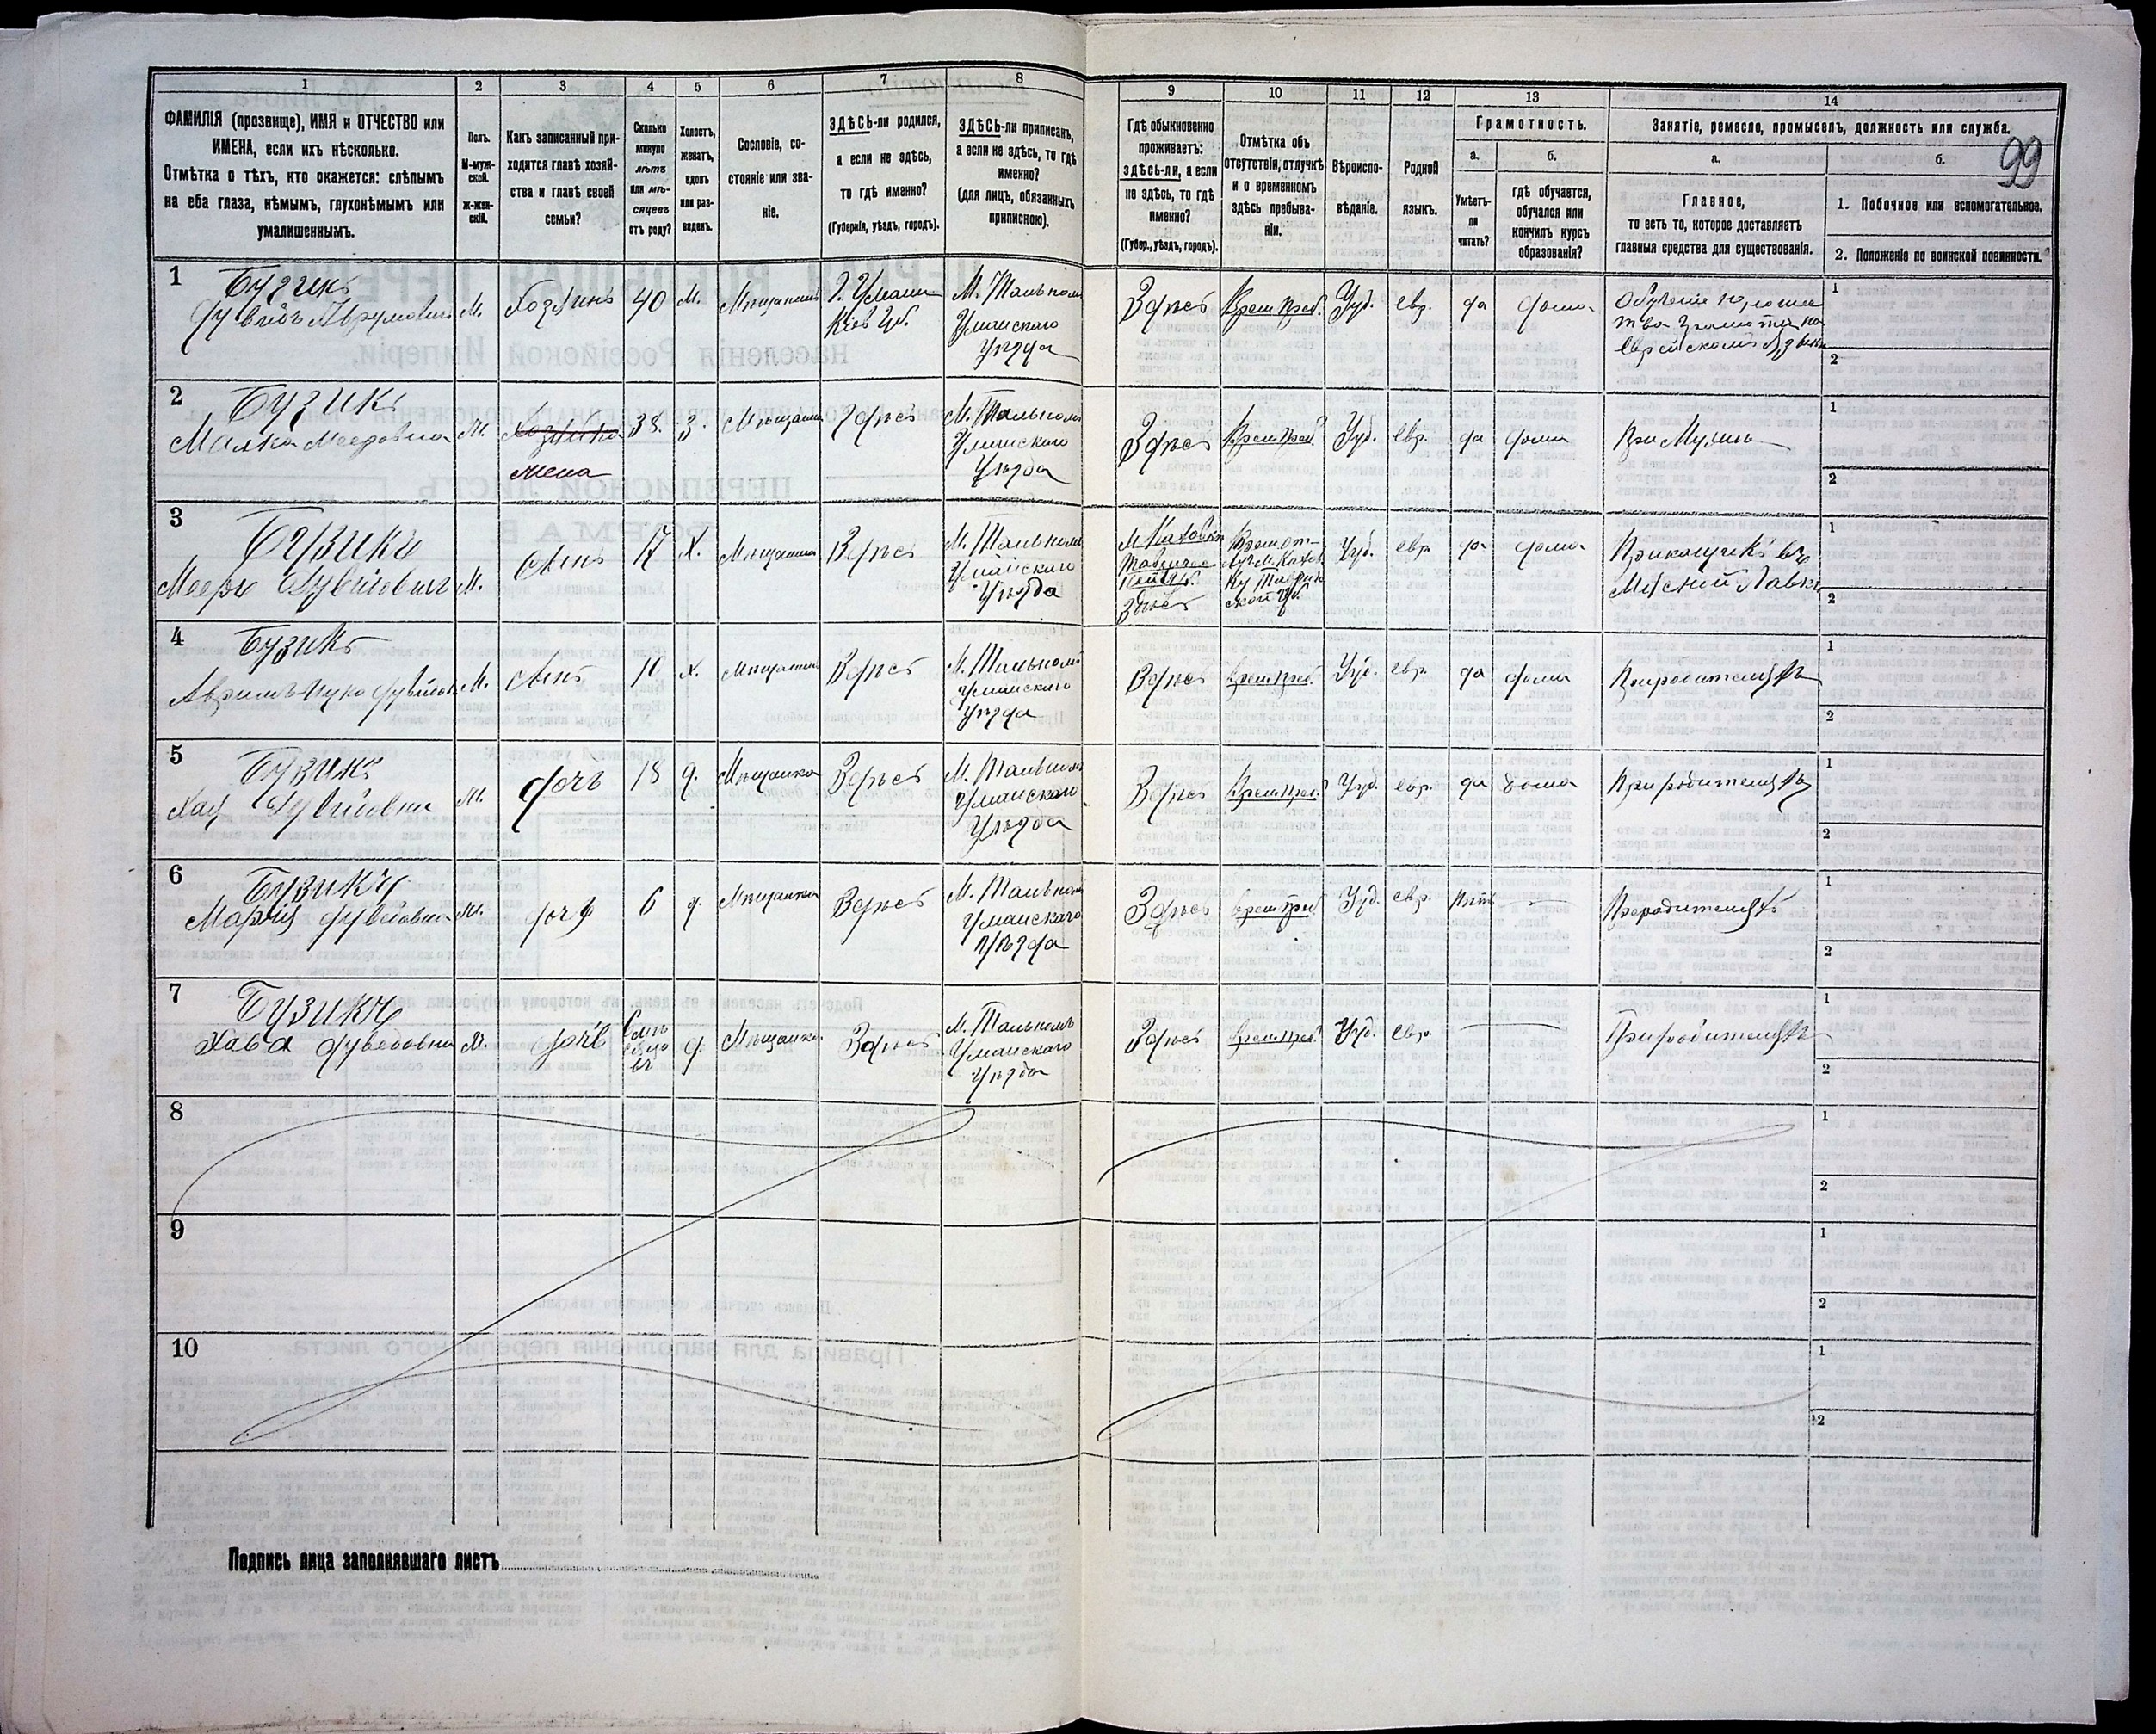 1 2 3 4 5 6 7 8 9 10 11 12 13 14
ФАМИЛІЯ (прозвище), ИМЯ и ОТЧЕСТВО или
ИМЕНА, если ихъ нѣсколько.
Отмѣтка о тѣхъ, кто окажется: слѣпымъ
на оба глаза, нѣмымъ, глухонѣмымъ или
умалишеннымъ.
Полъ.
М-муж-
ской.
ж-жен-
скій.
Какъ записанный при-
ходится главѣ хозяй-
ства и главѣ своей
семьи?
Сколько
минуло
лѣтъ
или мѣ-
сяцевъ
отъ роду?
Холостъ,
женатъ,
вдовъ
или раз-
веденъ.
Сословіе, со-
стояніе или зва-
ніе.
ЗДѢСЬ-ли родился,
а если не здѣсь,
то гдѣ именно?
(Губернія, уѣздъ, городъ).
ЗДѢСЬ-ли приписанъ,
а если не здѣсь, то гдѣ
именно?
(для лицъ, обязанныхъ
припискою).
Гдѣ обыкновенно
проживаетъ:
здѣсь-ли, а если
не здѣсь, то гдѣ
именно?
(Губер., уѣздъ, городъ).
Отмѣтка объ
отсутствіи, отлучкѣ
и о временномъ
здѣсь пребыва-
ніи.
Вѣроиспо-
вѣданіе.
Родной
языкъ.
Грамотность.
а.
Умѣетъ-
ли
читать?
б.
гдѣ обучается,
обучался или
кончилъ курсъ
образованія?
Занятіе, ремесло, промыселъ, должность или служба.
а.
Главное,
то есть то, которое доставляетъ
главныя средства для существованія.
б.
1. Побочное или вспомогательное.
2. Положеніе по воинской повинности.
99
1
Бузикъ
Дувидъ Аврумовичъ
М.
Хозяинъ
40
Мѣщанинъ
Г. Умани
Кіев Губ.
М. Тальномъ
Уманскаго
Уѣзда
Здѣсь
Врем Преб.
Іуд.
евр.
да
дома
Обученіе
грамотѣ на
Еврейскомъ Языкѣ
1
2
2
Бузикъ
Малка Мееровна
Хозяйка
жена
38.
З.
Здѣсь
М. Тальномъ
Уманскаго
Уѣзда
Здѣсь
Врем Преб.
Іуд.
евр.
да
дома
При Мужѣ
1
2
3
Бузикъ
Мееръ Дувидовичъ
М.
Сынъ
17
Х.
Мѣщанинъ
Здѣсь
М. Тальномъ
Уманскаго
Уѣзда
М Каховкѣ
Здѣсь
Іуд.
евр
да
дома
Прикащикъ въ
Лавкѣ
1
2
4
Бузикъ
М.
Сынъ
10
х.
Мѣщанинъ
Здѣсь
М. Тальномъ
Уманскаго
Уѣзда
Здѣсь
Врем Преб.
Іуд.
евр.
да
дома
При родителяхъ
1
2
5
Бузикъ
Хая Дувидовна
дочь
д.
Мѣщанка
Здѣсь
М. Тальномъ
Уманскаго
Уѣзда
Здѣсь
Врем Преб.
Іуд.
евр.
да
дома
При родителяхъ
1
2
6
Бузикъ
Марія Дувидовна
дочь
6
д.
Мѣщанка
Здѣсь
М. Тальномъ
Уманскаго
Уѣзда
Здѣсь
Врем Преб
Іуд.
евр.
При родителяхъ
1
2
7
Бузикъ
Хава Дувидовна
дочь
д.
Мѣщанка
Здѣсь
М. Тальномъ
Уманскаго
Уѣзда
Здѣсь
Врем Преб.
Іуд.
евр.
При родителяхъ
1
2
8
1
2
9
1
2
10
1
2
Подпись лица заполнявшаго листъ